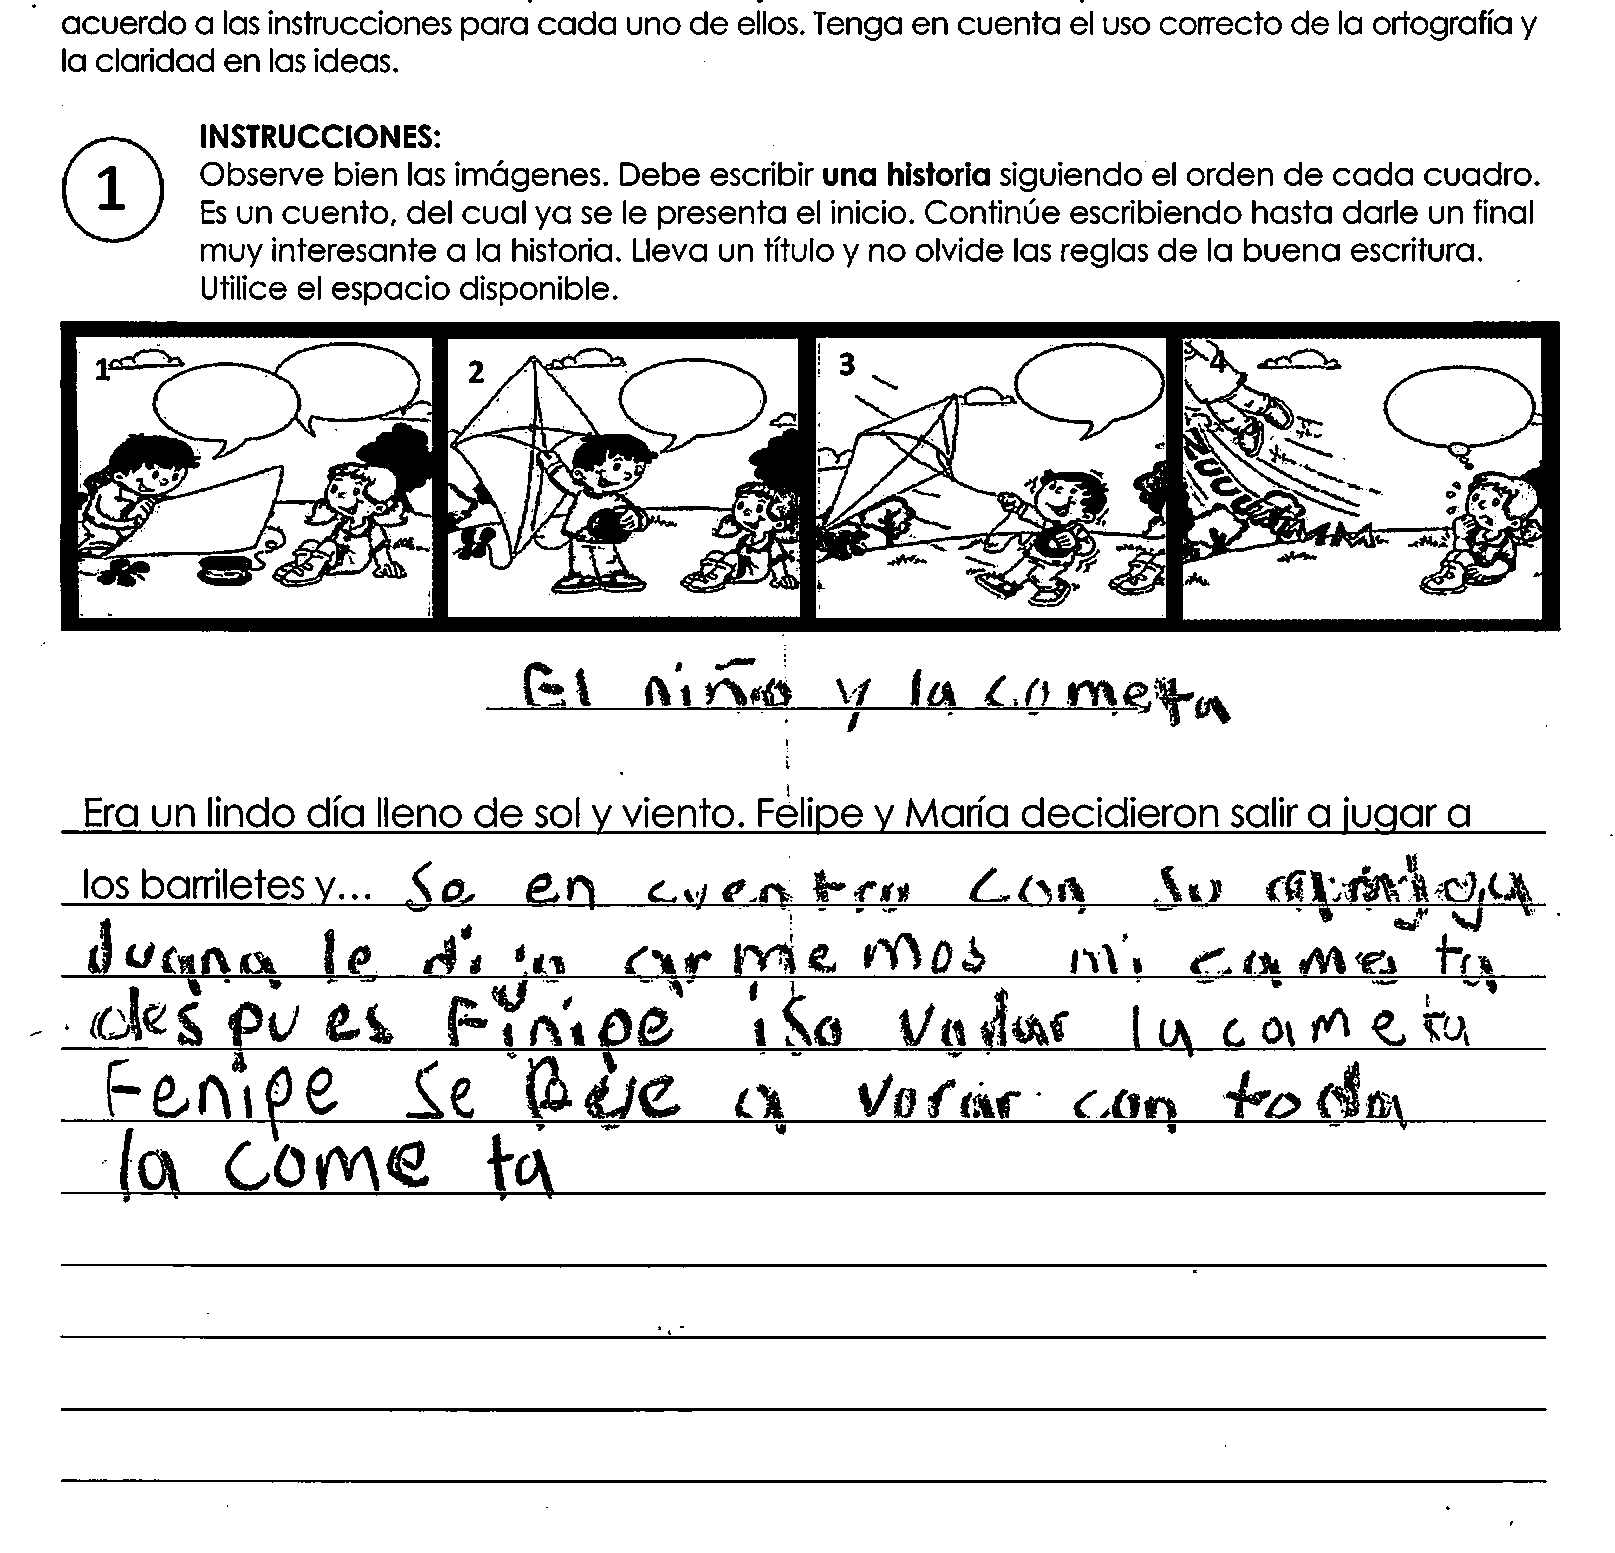 acuerdo a las instrucciones para cada uno de ellos. Tenga en cuenta el uso correcto de la ortografía y
la claridad en las ideas.
1
INSTRUCCIONES:
Observe bien las imágenes. Debe escribir una historia siguiendo el orden de cada cuadro.
Es un cuento, del cual ya se le presenta el inicio. Continúe escribiendo hasta darle un final
muy interesante a la historia. Lleva un título y no olvide las reglas de la buena escritura.
Utilice el espacio disponible.
1 2 3 4
El niño y la cometa
Era un lindo día lleno de sol y viento. Felipe y María decidieron salir a jugar a
los barriletes y... Se en cuentra con su
Juana le dijo armemos mi cometa
des pu es Finipe iso la come ta
Fenipe se a vorar con toda
la come ta